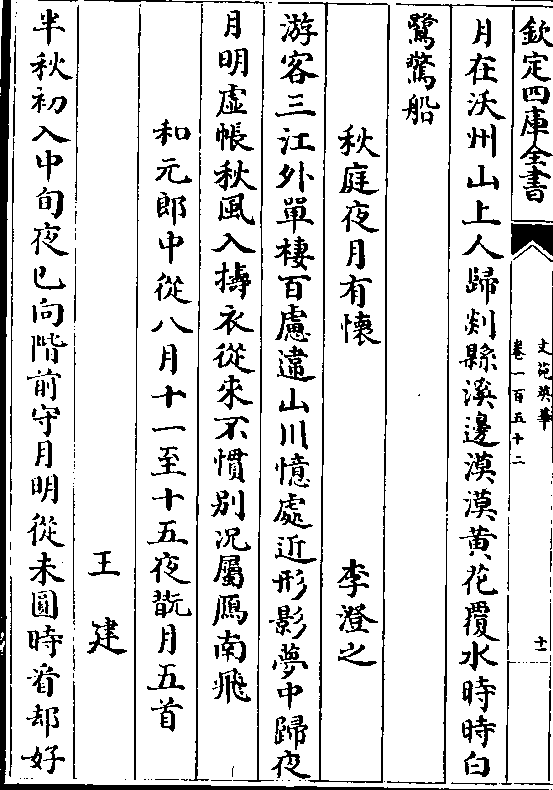 欽定四庫全書
文苑英華
卷一百五十二
十一
月在沃州山上人歸剡縣溪邊漠漠黄花覆水時時白
鷺驚船
秋庭夜月有懷
李澄之
游客三江外單棲百慮違山川憶處近形影夢中歸夜
月明虛帳秋風入擣衣從來不慣别况屬鴈南飛
和元郎中從八月十一至十五夜翫月五首
王建
半秋初入中旬夜已向階前守月明從未圓時㸔却好